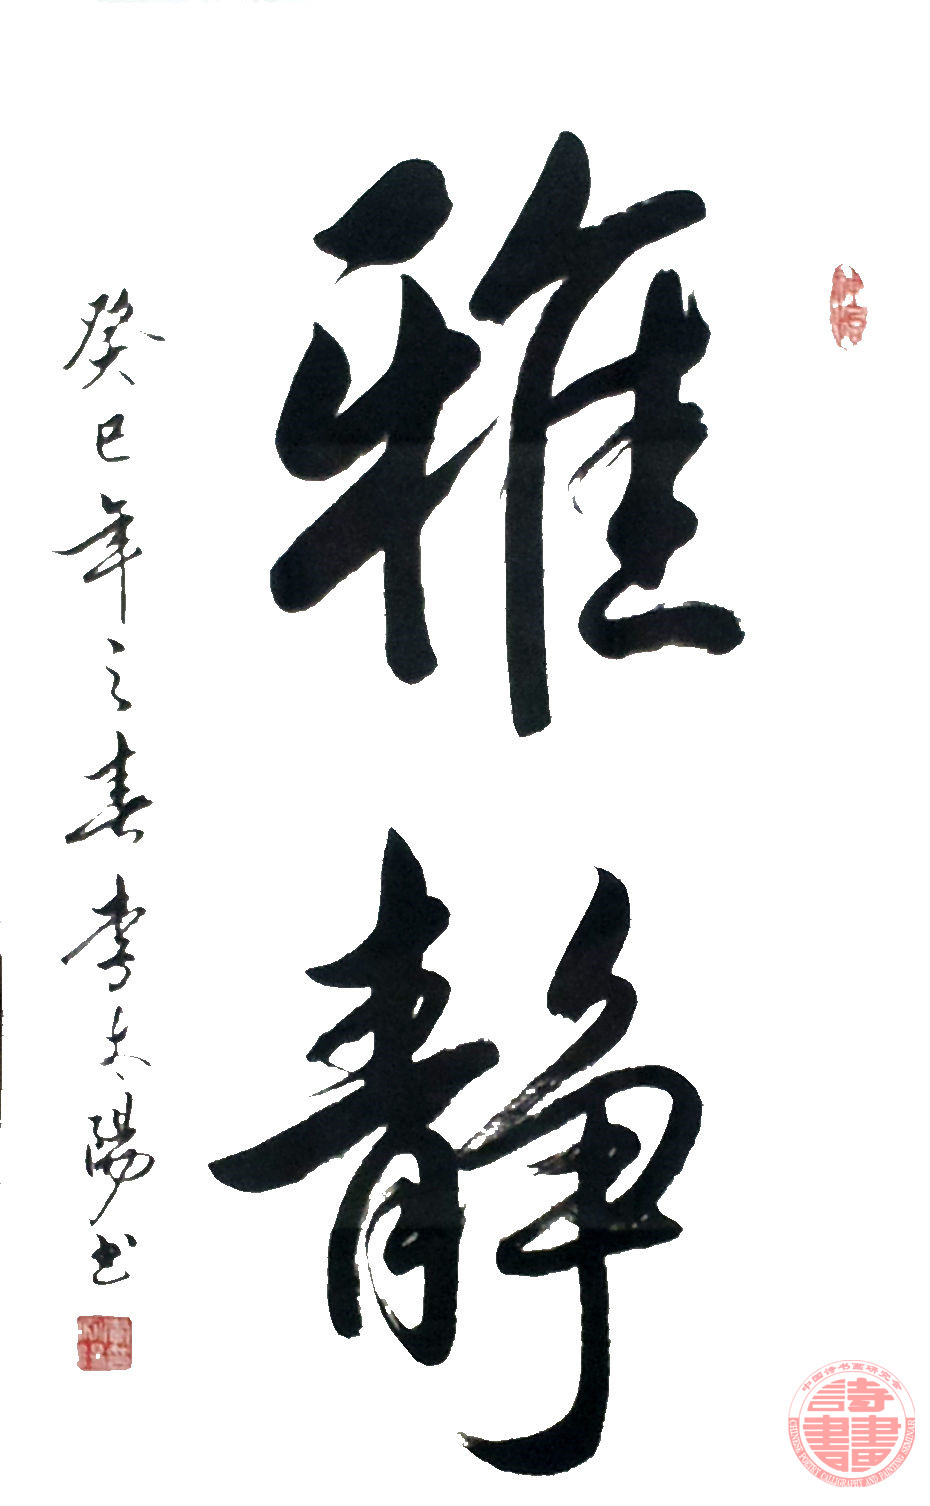 雅静
癸巳年之春李太陽书
中国诗书画研究会
詩書畫
CHINESE POETRY CALLIGRAPHY AND PAINTING SEMINAR